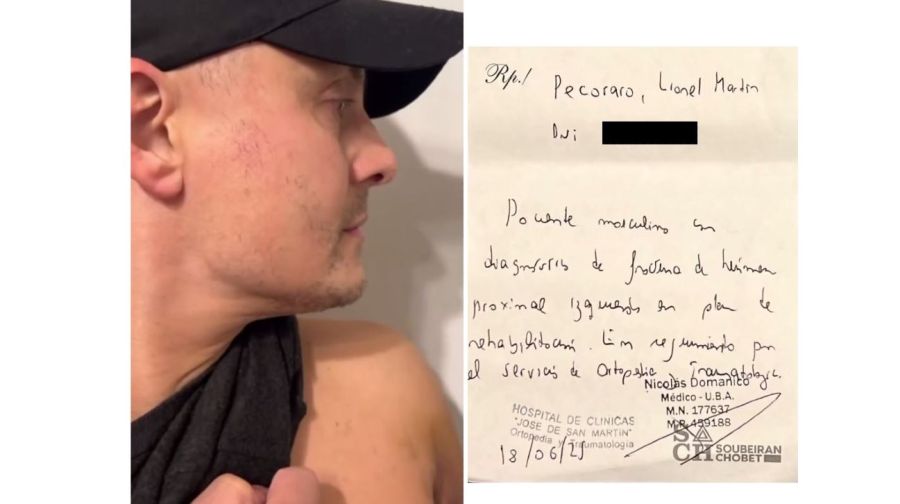 Rp./
Pecoraro, Lionel Martin
Dni
Paciente masculino con
diagnostico de fractura de humero
proximal izquierdo en plan de
rehabilitacion. En seguimiento por
el servicio de Ortopedia y Traumatologia.
Nicolás Domanico
Médico - U.B.A.
M.N. 177637
M.P. 459188
HOSPITAL DE CLINICAS
"JOSE DE SAN MARTIN"
Ortopedia y Traumatología
18/06/25
SCH SOUBEIRAN
CHOBET